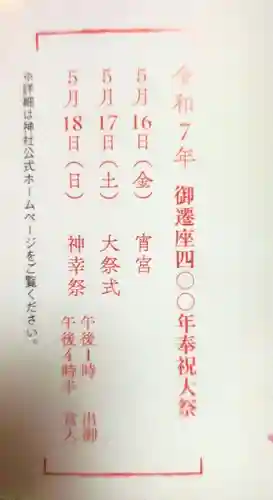 令和7年 御遷座四〇〇年奉祝大祭
5月16日(金) 宵宮
5月17日(土) 大祭式
5月18日(日) 神幸祭
午後1時 出御
午後4時半 宮入
※詳細は神社公式ホームページをご覧ください。